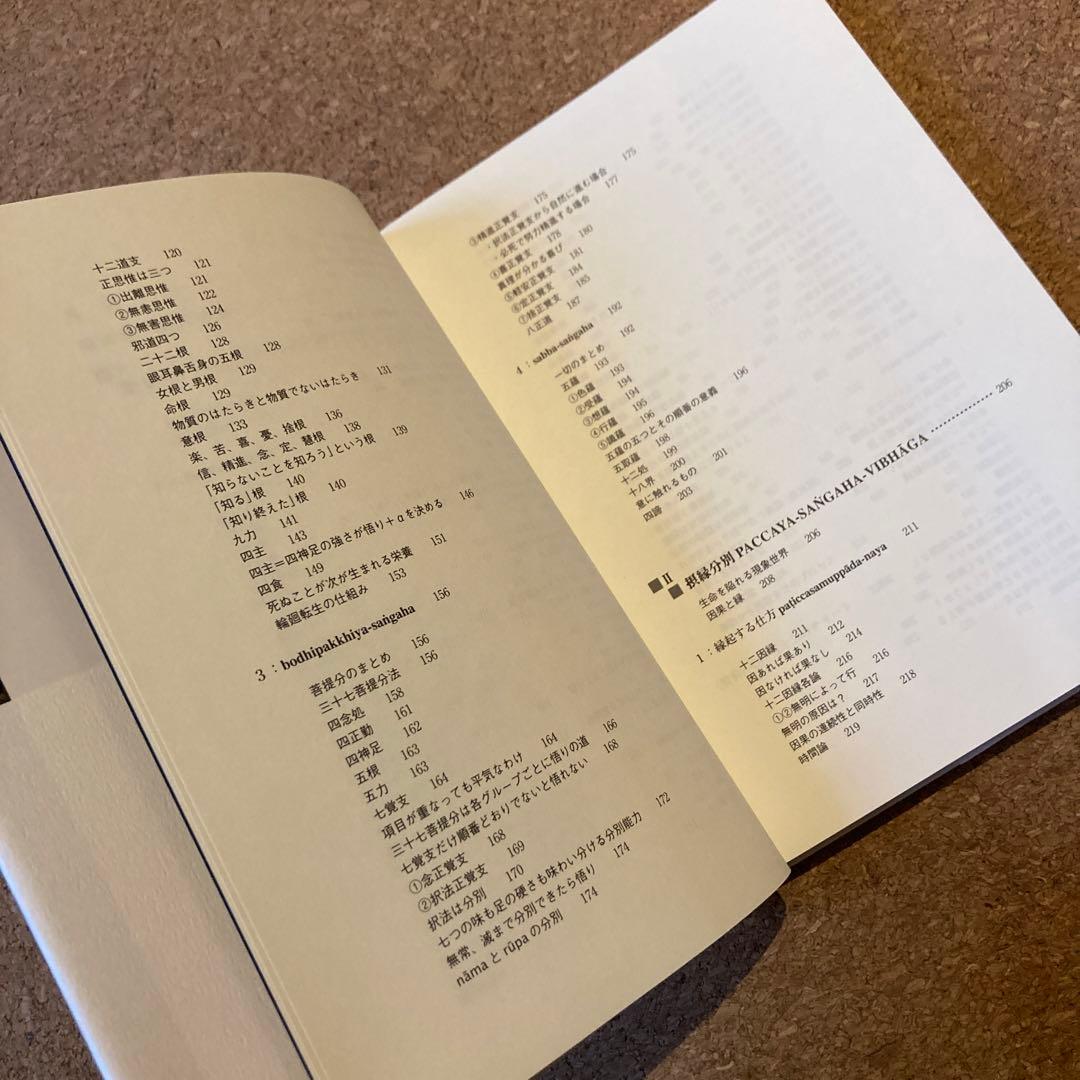 十二道支 120
正思惟は三つ 121
①出離思惟 121
②無恚思惟 122
③無害思惟 124
邪道四つ 126
二十二根 128
眼耳鼻舌身の五根 128
女根と男根 129
命根 129
物質のはたらきと物質でないはたらき 131
意根 133
楽、苦、喜、憂、捨根 136
信、精進、念、定、慧根 138
「知らないことを知ろう」という根 139
「知る」根 140
「知り終えた」根 140
九力 141
四主 143
四主＝四神足の強さが悟り＋αを決める 146
四食 149
死ぬことが次が生まれる栄養 151
輪廻転生の仕組み 153
3：bodhipakkhiya-saṅgaha 156
菩提分のまとめ 156
三十七菩提分法 156
四念処 158
四正勤 161
四神足 162
五根 163
五力 163
七覚支 164
項目が重なっても平気なわけ 164
三十七菩提分は各グループごとに悟りの道 166
七覚支だけ順番どおりでないと悟れない 168
①念正覚支 168
②択法正覚支 169
択法は分別 170
七つの味も足の硬さも味わい分ける分別能力 172
無常、滅まで分別できたら悟り 174
nāma と rūpa の分別 174
③精進正覚支 175
・択法正覚支から自然に進む場合 175
・必死で努力精進する場合 177
④喜正覚支 178
真理が分かる喜び 180
⑤軽安正覚支 181
⑥定正覚支 184
⑦捨正覚支 185
八正道 187
4：sabba-saṅgaha 192
一切のまとめ 192
五蘊 193
①色蘊 193
②受蘊 194
③想蘊 194
④行蘊 195
⑤識蘊 196
五蘊の五つとその順番の意義 196
五取蘊 198
十二処 199
十八界 200
意に触れるもの 201
四諦 203
■Ⅱ
■ 摂縁分別 PACCAYA-SAṄGAHA-VIBHĀGA …………… 206
生命を陥れる現象世界 206
因果と縁 208
1：縁起する仕方 paṭiccasamuppāda-naya 211
十二因縁 211
因あれば果あり 212
因なければ果なし 214
十二因縁各論 216
①②無明によって行 216
無明の原因は？ 217
因果の連続性と同時性 218
時間論 219